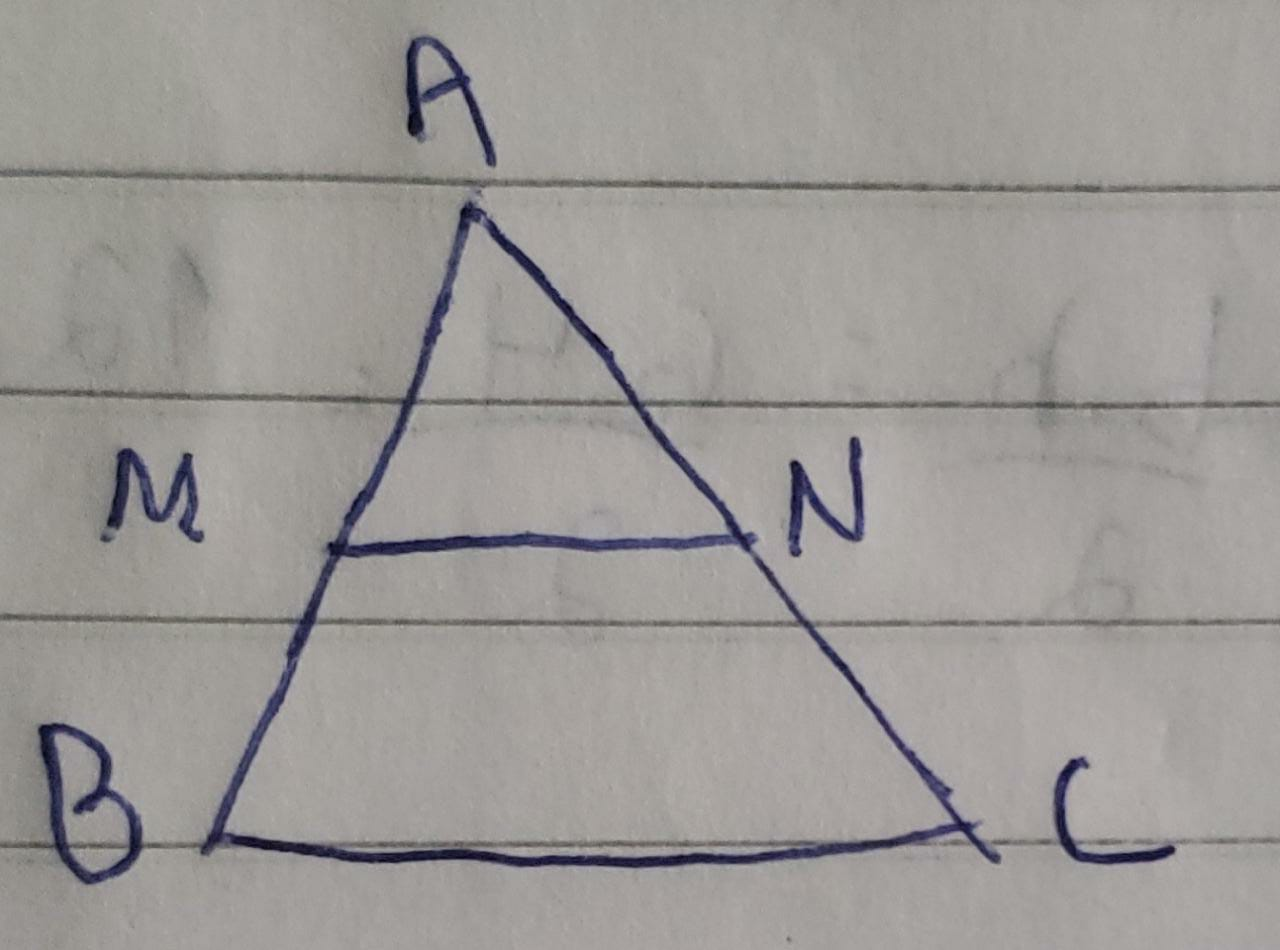 A
M N
B C